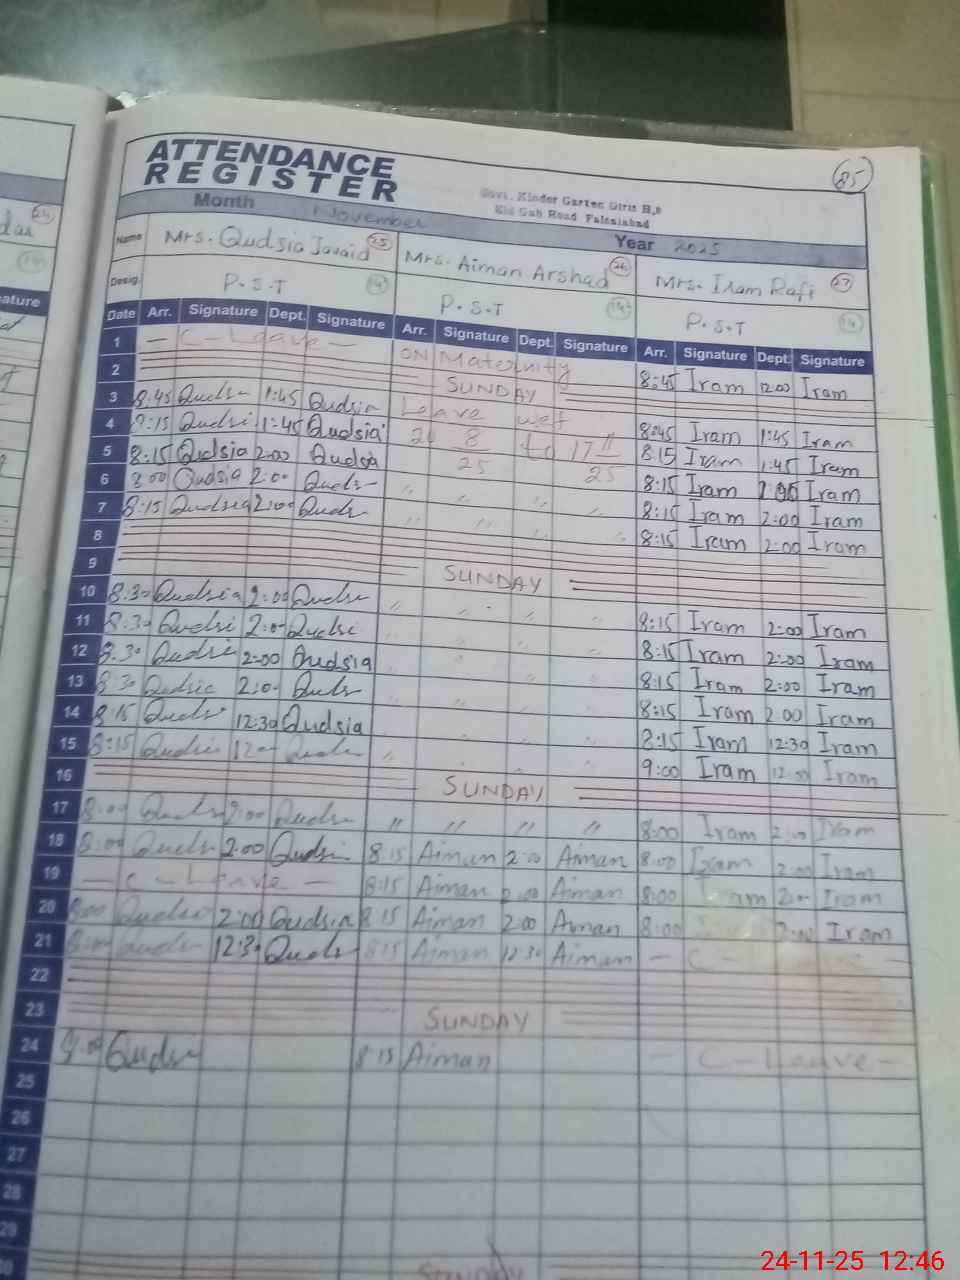 85
ATTENDANCE
REGISTER
Govt. Kinder Garten Girls H.S
Eid Gah Road Faisalabad
Month November Year 2025
Name Mrs. Qudsia Javaid 25 Mrs. Aiman Arshad 26 Mrs. Iram Rafi 27
Desig. P.S.T 14 P.S.T 14 P.S.T 14
Date Arr. Signature Dept. Signature Arr. Signature Dept. Signature Arr. Signature Dept. Signature
1 - C - Leave - ON Maternity 8:45 Iram 12:00 Iram
2 SUNDAY
3 8:45 Qudsia 1:45 Qudsia Leave wef 8:45 Iram 1:45 Iram
4 8:15 Qudsia 1:45 Qudsia 8 to 17 11 8:15 Iram 1:45 Iram
5 8:15 Qudsia 2:00 Qudsia 25 25 8:15 Iram Iram
6 8:00 Qudsia 2:00 Qudsia " " " " 8:15 Iram 2:00 Iram
7 8:15 Qudsia 2:00 Qudsia " " " " 8:15 Iram 2:00 Iram
8
9 SUNDAY
10 8:30 Qudsia 2:00 Qudsia " " " " 8:15 Iram 2:00 Iram
11 8:30 Qudsia 2:00 Qudsia " " " " 8:15 Iram 2:00 Iram
12 8:30 Qudsia 2:00 Qudsia " " " " 8:15 Iram 2:00 Iram
13 8:30 Qudsia 2:00 Qudsia " " " " 8:15 Iram 2:00 Iram
14 8:15 Qudsia 12:30 Qudsia " " " " 8:15 Iram 12:30 Iram
15 8:15 Qudsia Qudsia " " " " 9:00 Iram 12:00 Iram
16 SUNDAY
17 8:00 Qudsia 2:00 Qudsia " " " " 8:00 Iram 2:00 Iram
18 8:00 Qudsia 2:00 Qudsia 8:15 Aiman 2:00 Aiman 8:00 Iram 2:00 Iram
19 - C - Leave - 8:15 Aiman 2:00 Aiman 8:00 Iram 2:00 Iram
20 8:00 Qudsia 2:00 Qudsia 8:15 Aiman 2:00 Aiman 8:00 2:00 Iram
21 8:00 Qudsia 12:30 Qudsia 8:15 Aiman 12:30 Aimam - C - Leave -
22
23 SUNDAY
24 8:00 Qudsia 8:15 Aiman - C - Leave -
25
26
27
28
29
30 SUNDAY
24-11-25 12:46